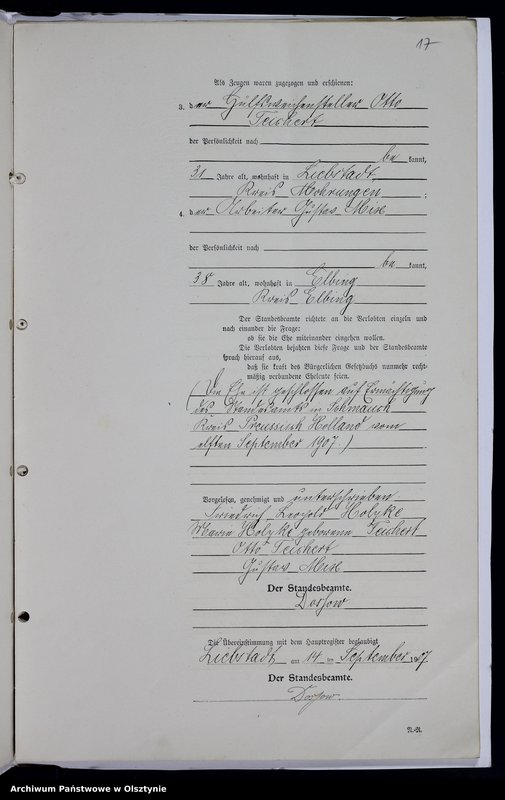 17
Als Zeugen waren zugezogen und erschienen:
3. der Hülfsweichensteller Otto
Teichert
der Persönlichkeit nach
be kannt,
31 Jahre alt, wohnhaft in Liebstadt,
Kreis Mohrungen ;
4. der Arbeiter Gustav Mix
der Persönlichkeit nach
be kannt,
38 Jahre alt, wohnhaft in Elbing
Kreis Elbing
Der Standesbeamte richtete an die Verlobten einzeln und
nach einander die Frage:
ob sie die Ehe miteinander eingehen wollen.
Die Verlobten bejahten diese Frage und der Standesbeamte
sprach hierauf aus,
daß sie kraft des Bürgerlichen Gesetzbuchs nunmehr recht-
mäßig verbundene Eheleute seien.
(Die Ehe ist geschlossen auf Ermächtigung
des Standesamts in Schmauch
Kreis Preussisch Holland vom
elften September 1907.)
Vorgelesen, genehmigt und unterschrieben
Friedrich Leopold Holzke
Marie Holzke geborene Teichert
Otto Teichert
Gustav Mix
Der Standesbeamte.
Die Übereinstimmung mit dem Hauptregister beglaubigt
Liebstadt am 14 ten September 1907.
Der Standesbeamte.
Archiwum Państwowe w Olsztynie